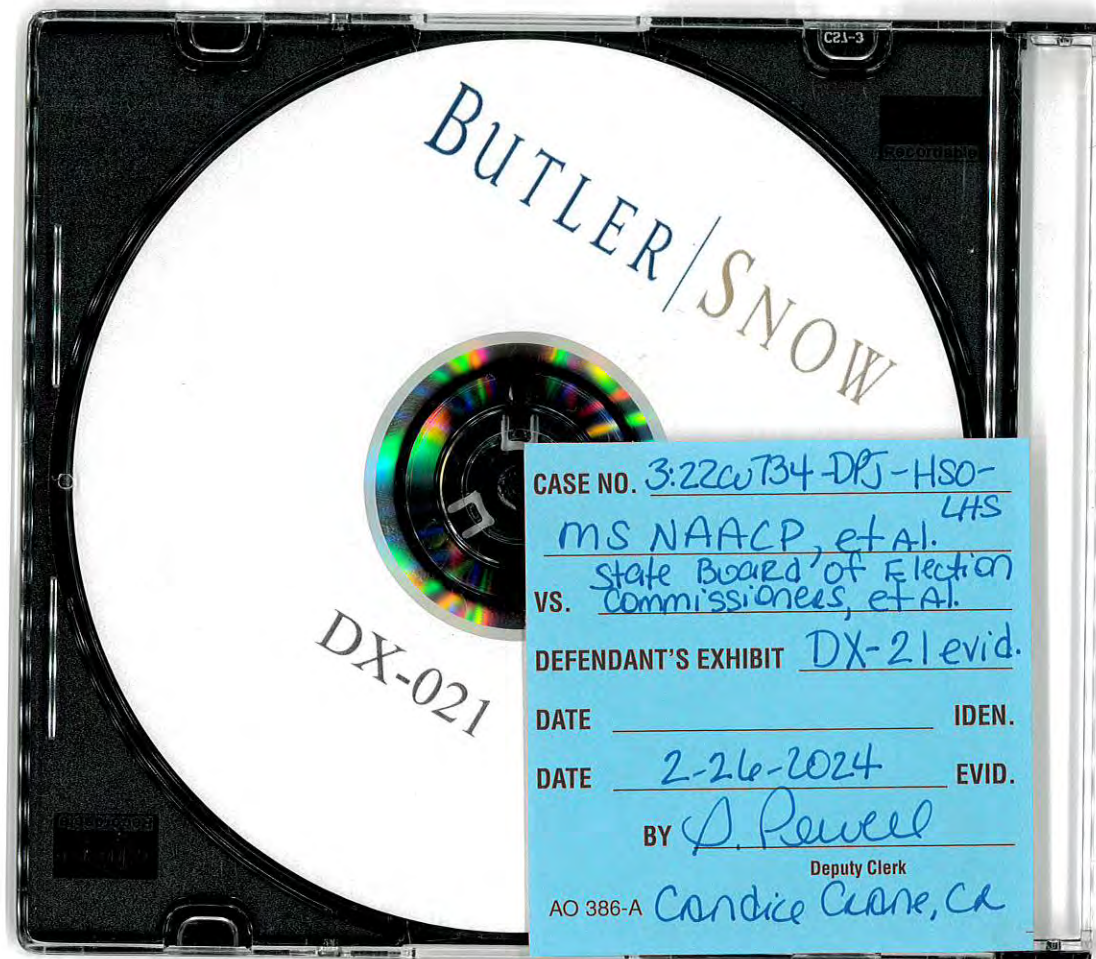 C27-3
Recordable
BUTLER | SNOW
DX-021
CASE NO. 3:22cv734-DPJ-HSO-
LHS
MS NAACP, et Al.
State Board of Election
VS. Commissioners, et Al.
DEFENDANT'S EXHIBIT DX-21 evid.
DATE IDEN.
DATE 2-26-2024 EVID.
BY S. Powell
Deputy Clerk
AO 386-A Candice Crane, CR